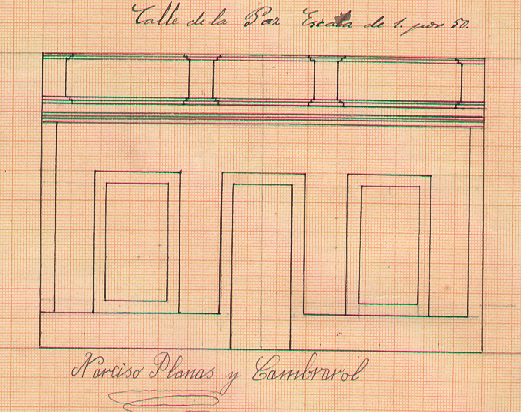 Calle de la Paz Escala de 1. por 50.
Narciso Planas y Cambrarol